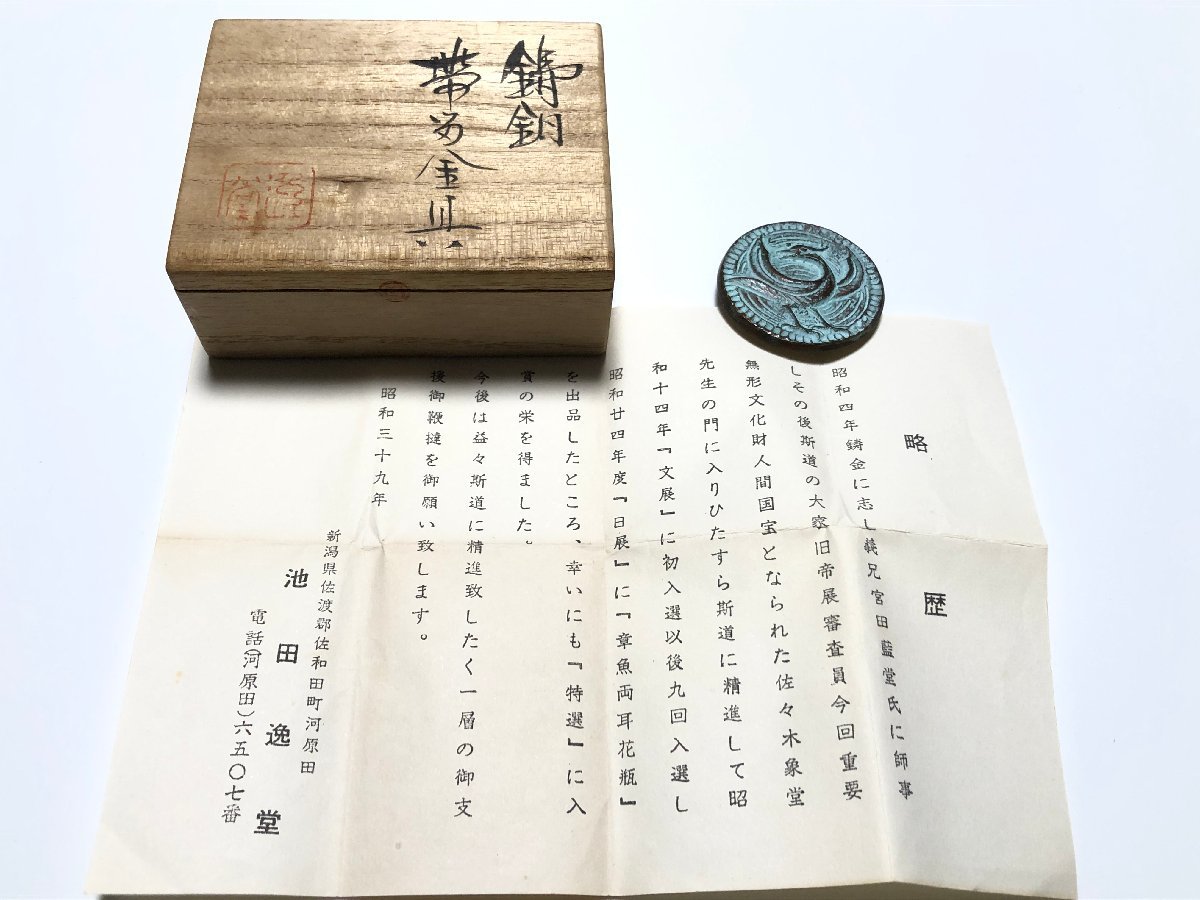 鋳銅
帯留金具
逸堂
略歴
昭和四年鋳金に志し義兄宮田藍堂氏に師事
しその後斯道の大家旧帝展審査員今回重要
無形文化財人間国宝となられた佐々木象堂
先生の門に入りひたすら斯道に精進して昭
和十四年『文展』に初入選以後九回入選し
昭和廿四年度『日展』に『章魚両耳花瓶』
を出品したところ、幸いにも『特選』に入
賞の栄を得ました。
今後は益々斯道に精進致したく一層の御支
援御鞭撻を御願い致します。
昭和三十九年
新潟県佐渡郡佐和田町河原田
池田逸堂
電話(河原田)六五〇七番